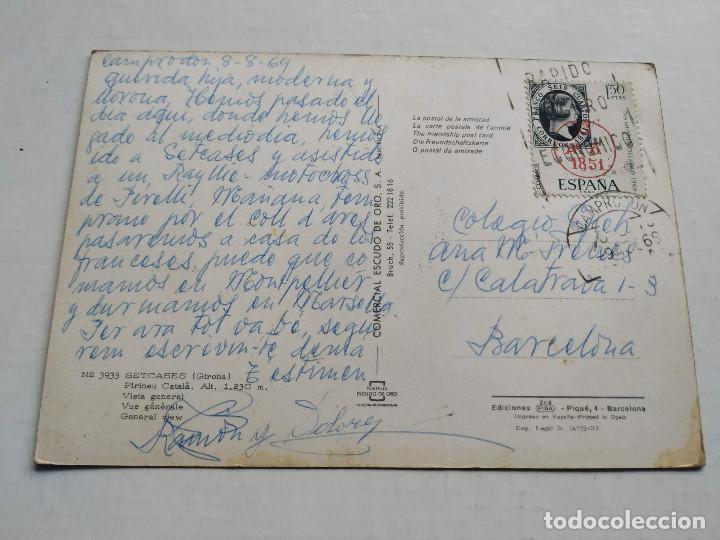 Camprodon 8-8-69
querida hija, moderna y
llorona, Hemos pasado el
dia aqui, donde hemos lle
gado al mediodia, hemos
ido a Setcases y asistido
a un Rayllie-motocross
de Pirelli, Mañana tem
prano por el coll d'ares
pasaremos a casa de los
franceses, puede que co
mamos en Montpellier
y durmamos en Marsella
Per ara tot va bé, segui
rem escrivin-te demà
T'estimen
Ramón y Dolores
Nº 3933 SETCASES (Girona)
Pirineu Català, Alt. 1.230 m.
Vista general
Vue générale
General view
COMERCIAL ESCUDO DE ORO, S. A.
Bruch, 55 - Teléf. 2221816
Reproducción prohibida
POSTALES
ESCUDO DE ORO
La postal de la amistad
La carte postale de l'amitié
The friendship post card
Die Freundschaftskarte
O postal da amizade
RAPIDO
FRANCO SEIS CUARTOS
1'50
PTAS
CORREOS
1851
ESPAÑA
CAMPRODON
Colegio
Ana M.
c/ Calatrava 1-3
Barcelona
Ediciones FISA - Piqué, 4 - Barcelona
Impreso en España-Printed in Spain
Dep. Legal B.
todocoleccion
todocoleccion.net